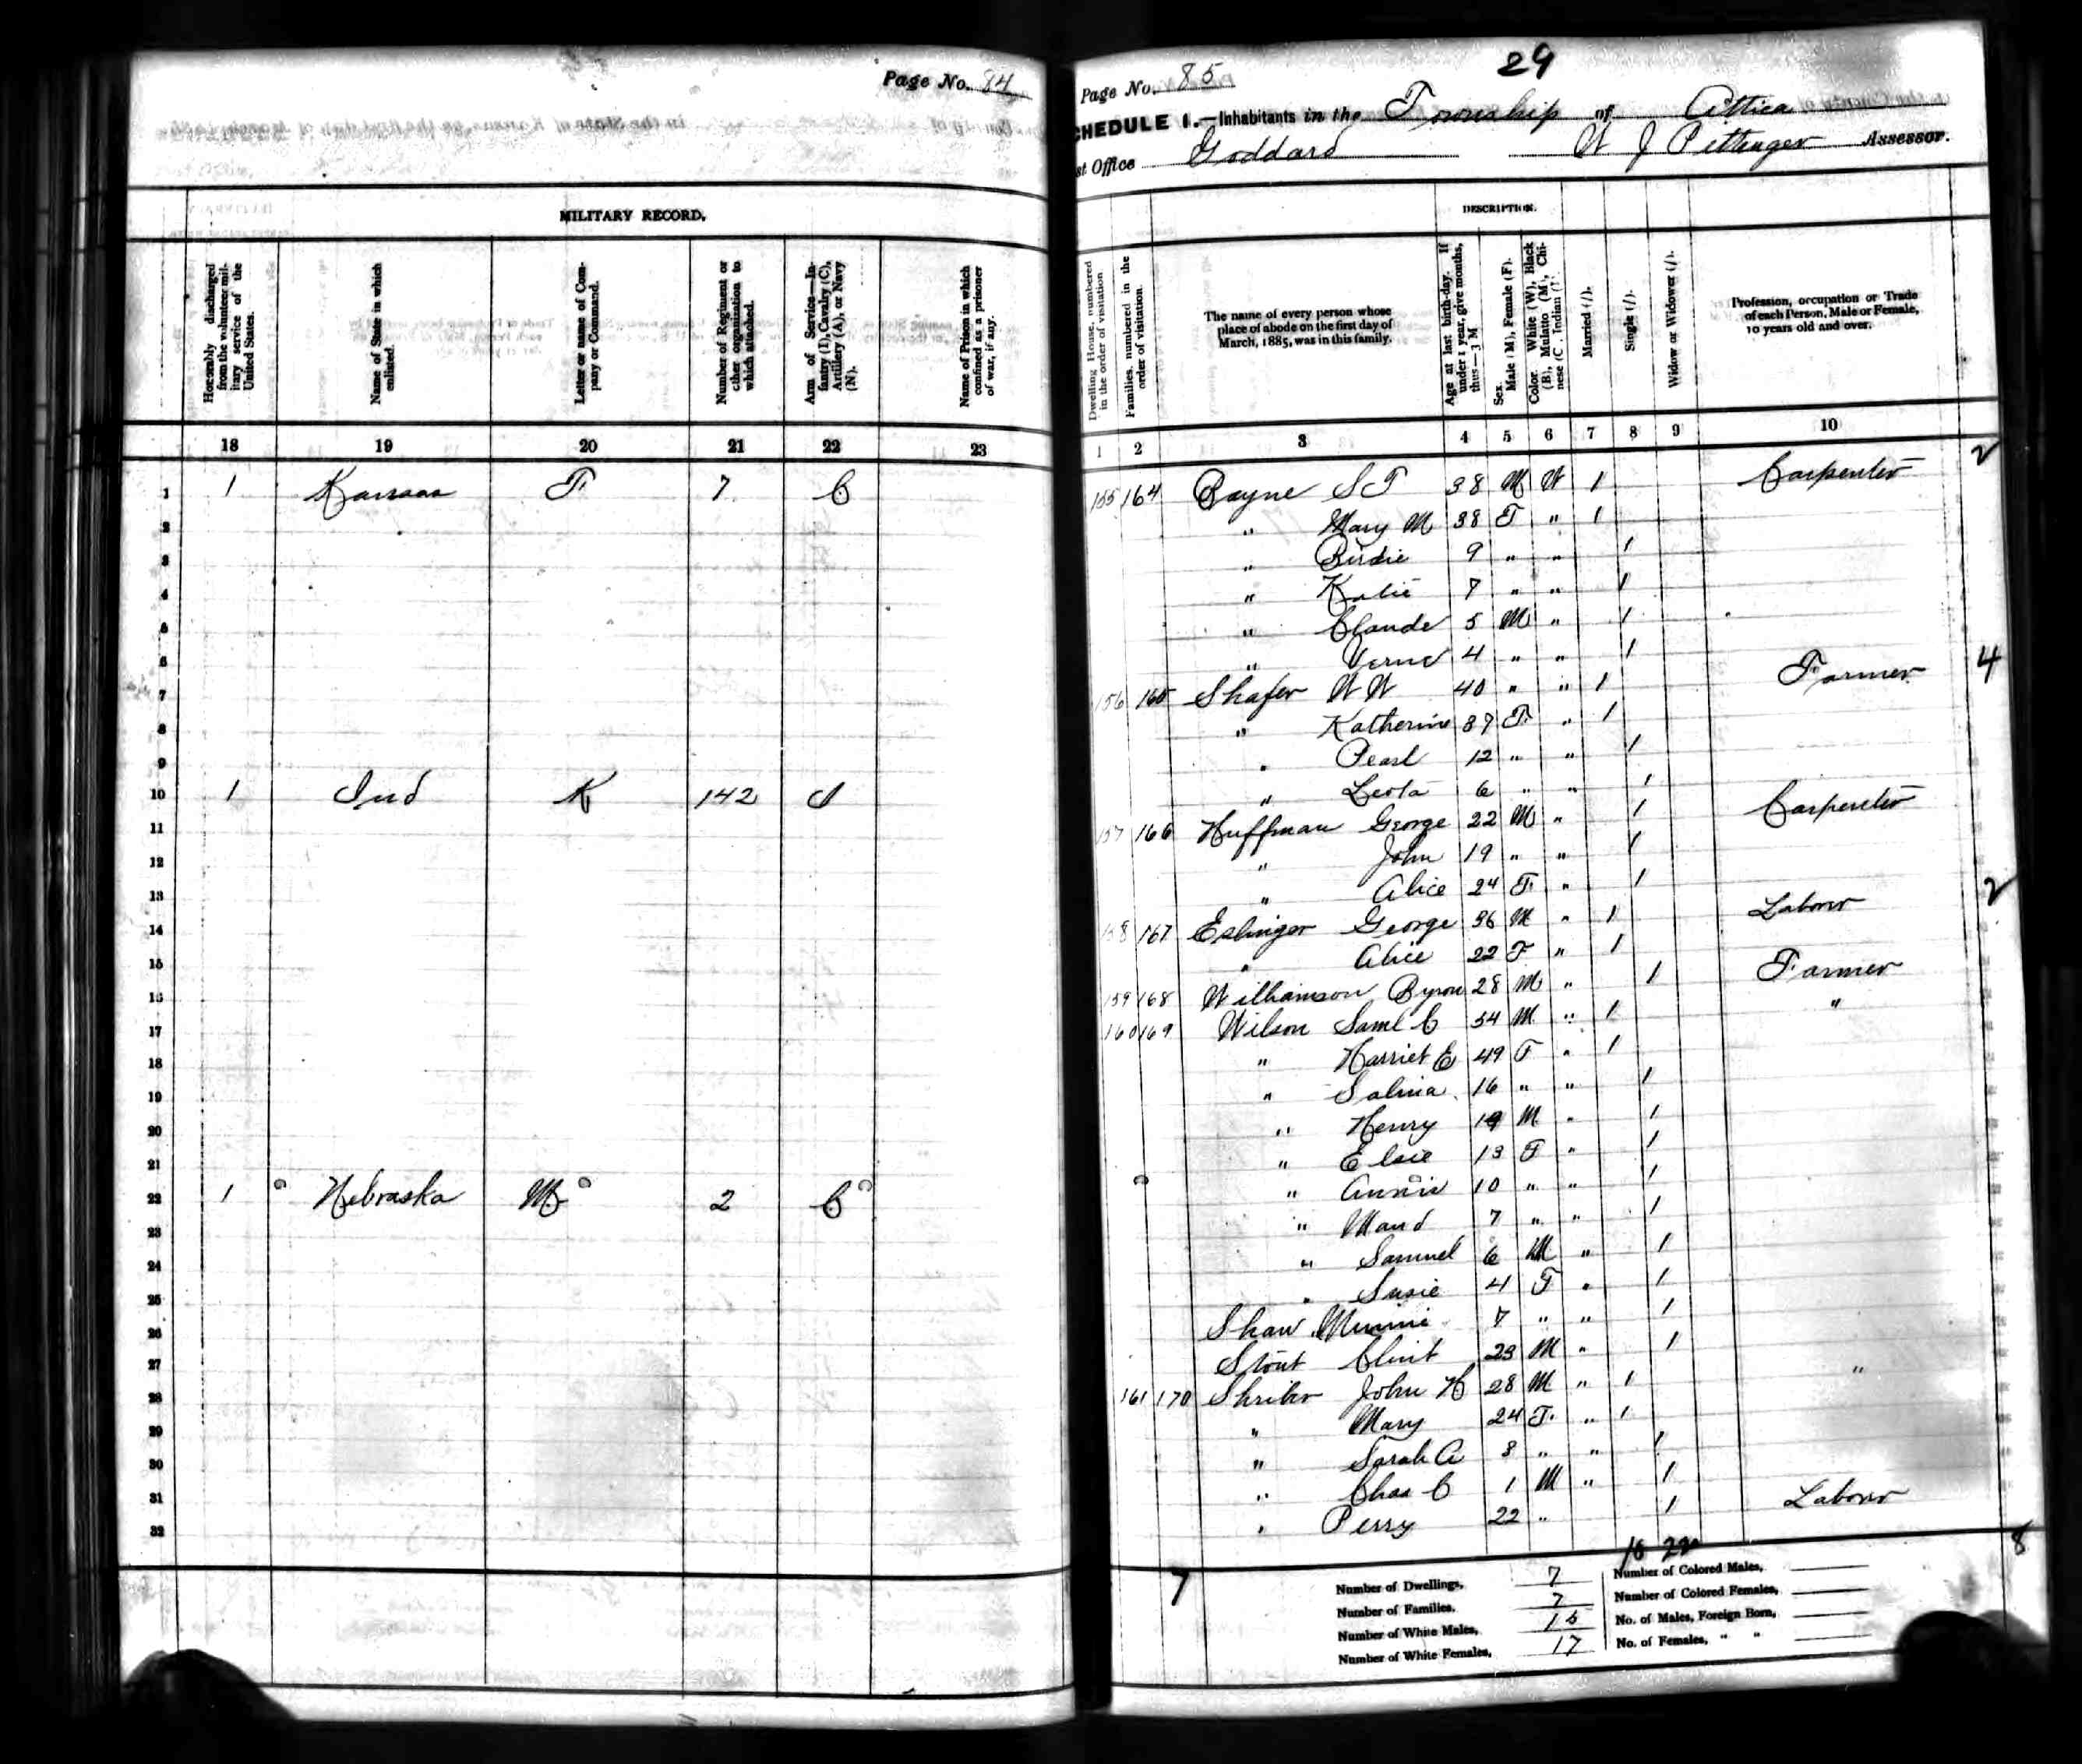 Page No. 84
MILITARY RECORD.
Honorably discharged from the volunteer military service of the United States.
Name of State in which enlisted.
Letter or name of Company or Command.
Number of Regiment or other organization to which attached.
Arm of Service—Infantry (I), Cavalry (C), Artillery (A), or Navy (N).
Name of Prison in which confined as a prisoner of war, if any.
18 19 20 21 22 23
1 1 Kansas F 7 C
2
3
4
5
6
7
8
9
10 1 Ind K 142 I
11
12
13
14
15
16
17
18
19
20
21
22 1 Nebraska M 2 C
23
24
25
26
27
28
29
30
31
32
29
Page No. 85
CHEDULE 1.—Inhabitants in the Township of Attica
st Office Goddard W J Pettenger Assessor.
DESCRIPTION.
Dwelling House, numbered in the order of visitation.
Families, numbered in the order of visitation.
The name of every person whose
place of abode on the first day of
March, 1885, was in this family.
Age at last birth-day. If under 1 year, give months, thus—3 M
Sex. Male (M), Female (F).
Color. White (W), Black (B), Mulatto (M), Chinese (C), Indian (I)
Married (/).
Single (/).
Widow or Widower (/).
Profession, occupation or Trade
of each Person, Male or Female,
10 years old and over.
1 2 3 4 5 6 7 8 9 10
155 164 Bayne S T 38 M W 1 Carpenter 2
" Mary M 38 F " 1
" Birdie 9 " " 1
" Katie 7 " " 1
" Claude 5 M " 1
" Verne 4 " " 1
156 165 Shafer W W 40 " " 1 Farmer 4
" Katherine 37 F " 1
" Pearl 12 " " 1
" Leota 6 " " 1
157 166 Huffman George 22 M " 1 Carpenter
" John 19 " " 1
" Alice 24 F " 1
158 167 Eslinger George 36 M " 1 Laborer 2
" Alice 22 F " 1
159 168 Williamson Byron 28 M " 1 Farmer
160 169 Wilson Saml C 54 M " 1 "
" Harriet E 49 F " 1
" Salina 16 " " 1
" Henry 19 M " 1
" Elsie 13 F " 1
" Annie 10 " " 1
" Maud 7 " " 1
" Samuel 6 M " 1
" Susie 4 F " 1
Shaw Minnie 7 " " 1
Stout Clint 23 M " 1
161 170 Shriber John H 28 M " 1 "
" Mary 24 F " 1
" Sarah A 3 " " 1
" Chas C 1 M " 1
" Perry 22 " 1 Laborer
7 8
Number of Dwellings, 7
Number of Families, 7
Number of White Males, 15
Number of White Females, 17
Number of Colored Males,
Number of Colored Females,
No. of Males, Foreign Born,
No. of Females, " "